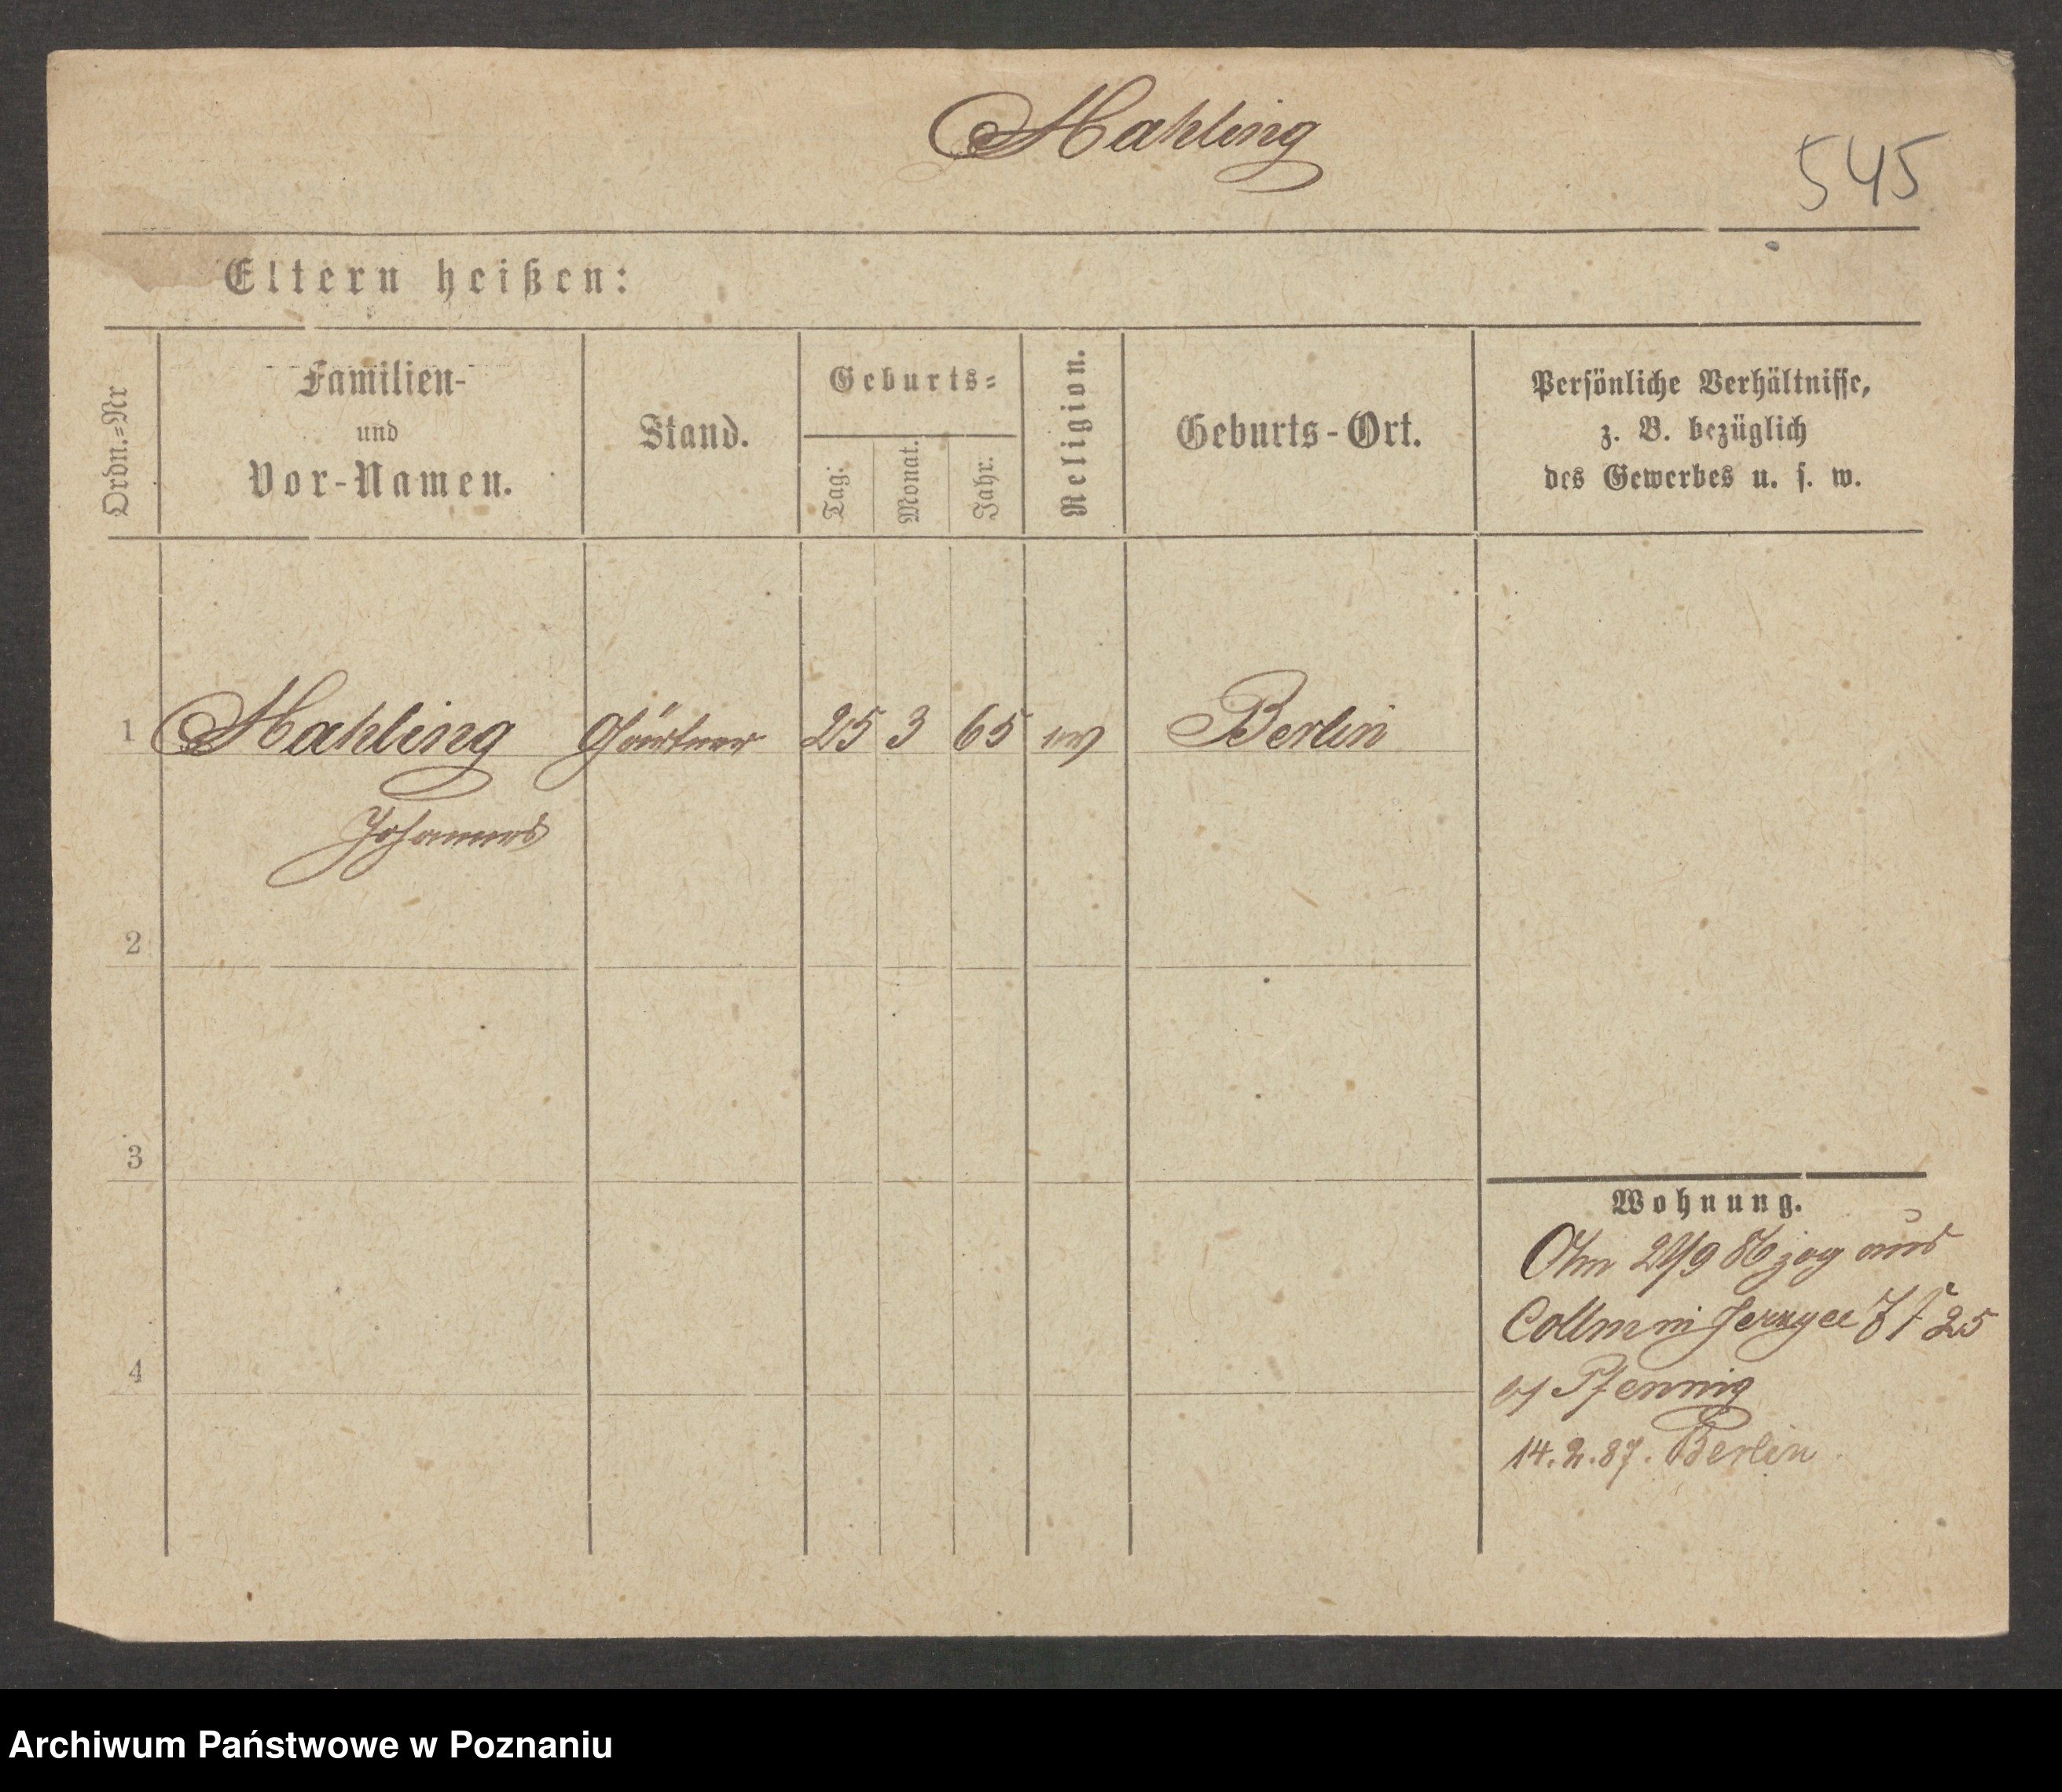 Mahling
545
Eltern heißen:
Ordn.=Nr
Familien-
und
Vor-Namen.
Stand.
Geburts=
Tag.
Monat.
Jahr.
Religion.
Geburts-Ort.
Persönliche Verhältnisse,
z. B. bezüglich
des Gewerbes u. s. w.
1 Mahling Gärtner 25 3 65 ev Berlin
Johannes
2
3
4
Wohnung.
zog aus
25
Pfennig
14.2.87. Berlin
Archiwum Państwowe w Poznaniu